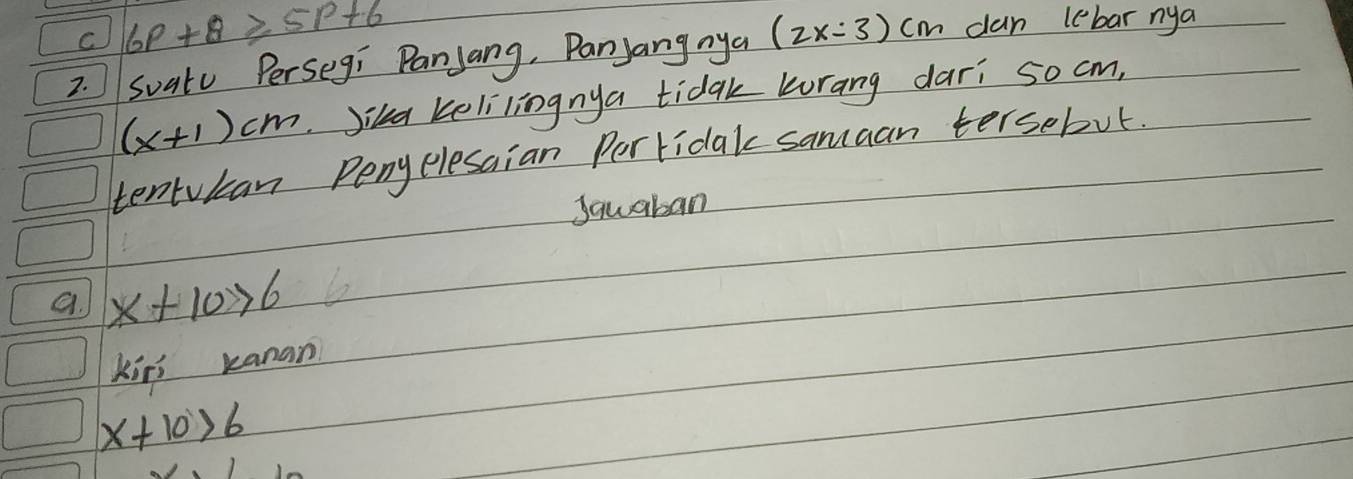 c 6P + 8 ≥ 5P + 6
2. Suatu Persegi Panjang. Panjangnya (2x-3) cm dan lebar nya
(x+1) cm. Jika kelilingnya tidak kurang dari 50 cm,
tentukan Penyelesaian Pertidak samaan tersebut.
Jawaban
a. x + 10 > 6
kiri kanan
x + 10 > 6